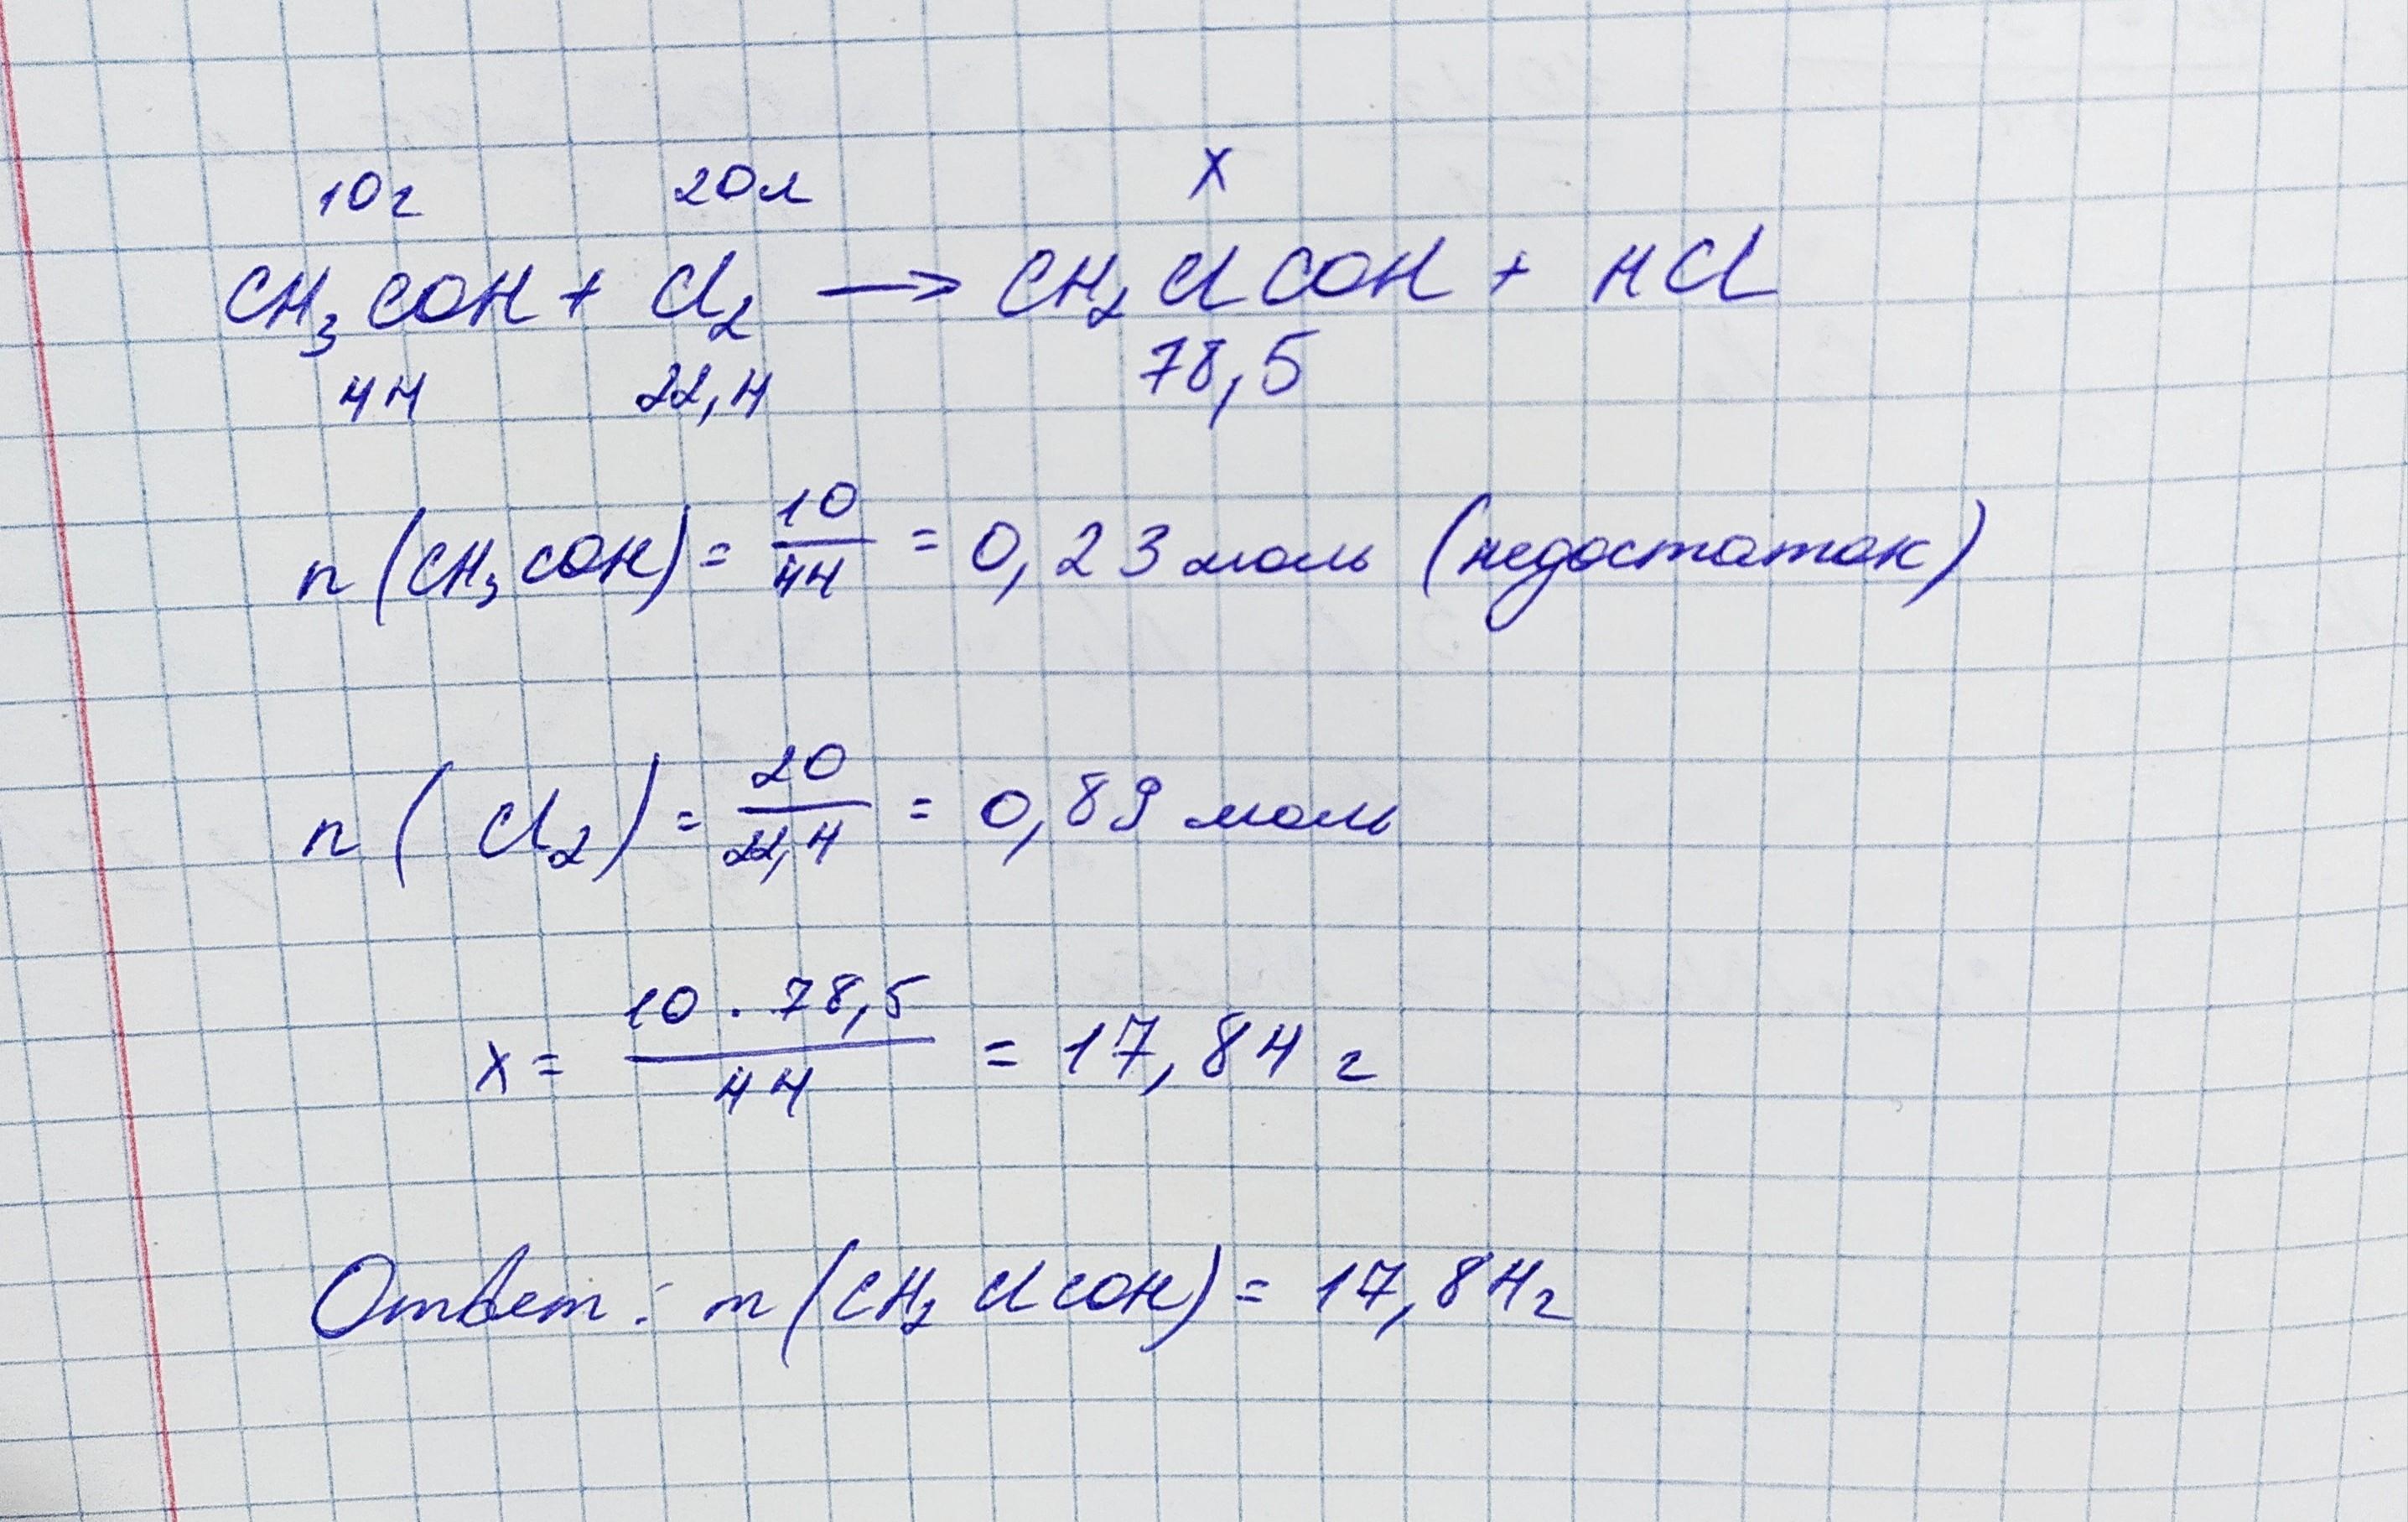 10г 20л X
CH₃COH + Cl₂ → CH₂ClCOH + HCl
44 22,4 78,5
n(CH₃COH) = 10/44 = 0,23 моль (недостаток)
n(Cl₂) = 20/22,4 = 0,89 моль
x = 10 · 78,5/44 = 17,84 г
Ответ: m(CH₂ClCOH) = 17,84г